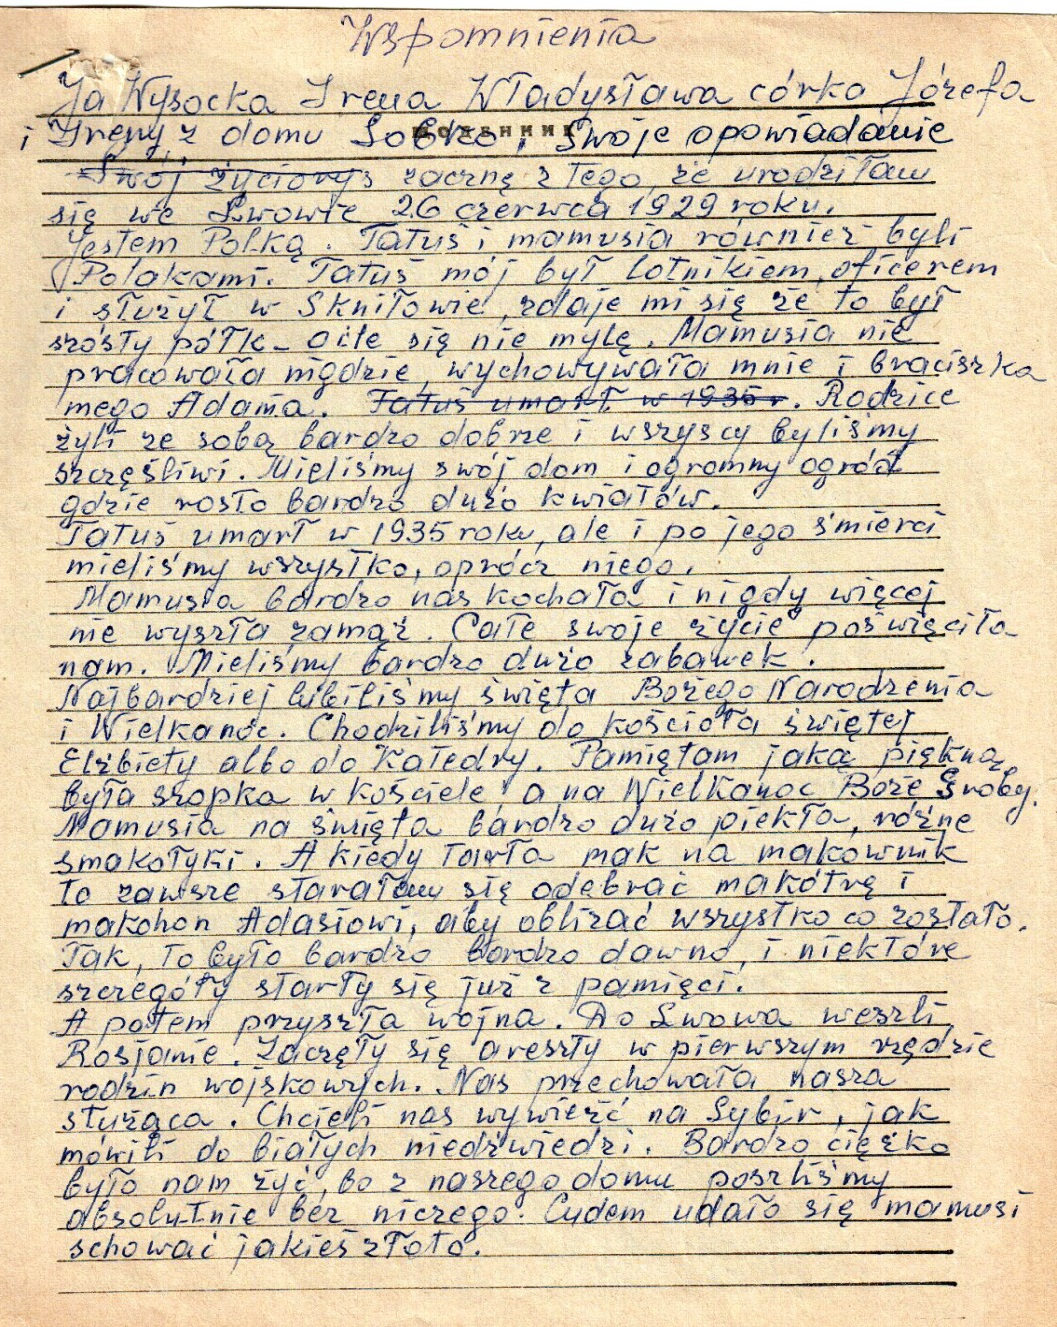 Wspomnienia
Ja Wysocka Irena Władysława córka Józefa
i Ireny z domu Sobko, Swoje opowiadanie
щоденник
Swój życiorys zacznę z tego, że urodziłam
się we Lwowie 26 czerwca 1929 roku.
Jestem Polką. Tatuś i mamusia również byli
Polakami. Tatuś mój był lotnikiem, oficerem
i służył w Skniłowie, zdaje mi się że to był
szósty półk – o ile się nie mylę. Mamusia nie
pracowała nigdzie, wychowywała mnie i braciszka
mego Adama. Tatuś umarł w 1935 r. Rodzice
żyli ze sobą bardzo dobrze i wszyscy byliśmy
szczęśliwi. Mieliśmy swój dom i ogromny ogród
gdzie rosło bardzo dużo kwiatów.
Tatuś umarł w 1935 roku, ale i po jego śmierci
mieliśmy wszystko, oprócz niego.
Mamusia bardzo nas kochała i nigdy więcej
nie wyszła zamąż. Całe swoje życie poświęciła
nam. Mieliśmy bardzo dużo zabawek.
Najbardziej lubiliśmy święta Bożego Narodzenia
i Wielkanoc. Chodziliśmy do kościoła świętej
Elżbiety albo do Katedry. Pamiętam jaką piękną
była szopka w kościele, a na Wielkanoc Boże Groby.
Mamusia na święta bardzo dużo piekła, różne
smakołyki. A kiedy tarła mak na makownik
to zawsze starałam się odebrać makótrę i
makohon Adasiowi, aby oblizać wszystko co zostało.
Tak, to było bardzo bardzo dawno, i niektóre
szczegóły starły się już z pamięci.
A potem przyszła wojna. Do Lwowa weszli
Rosjanie. Zaczęły się areszty w pierwszym rzędzie
rodzin wojskowych. Nas przechowała nasza
służąca. Chcieli nas wywieźć na Sybir, jak
mówili do białych niedźwiedzi. Bardzo ciężko
było nam żyć, bo z naszego domu poszliśmy
absolutnie bez niczego. Cudem udało się mamusi
schować jakieś złoto.